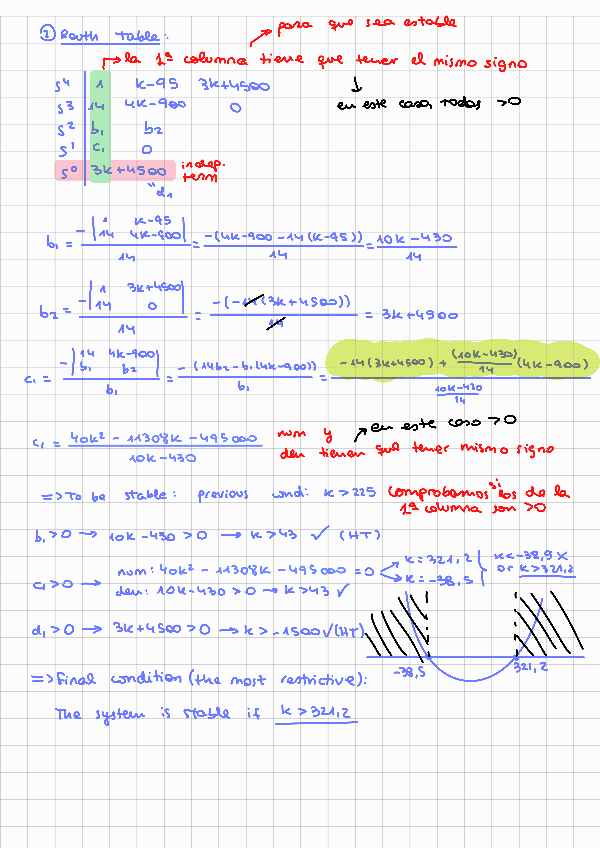 para que sea estable
② Routh Table:
la 1ª columna tiene que tener el mismo signo
s⁴ | 1 k-95 3k+4500
en este caso, todos >0
s³ | 14 4k-900 0
s² | b₁ b₂
s¹ | c₁ 0
s⁰ | 3k+4500 indep. term
"d₁
b₁ = -|1 k-95; 14 4k-900| / 14 = -(4k-900-14(k-95)) / 14 = 10k-430 / 14
b₂ = -|1 3k+4500; 14 0| / 14 = -(-14(3k+4500)) / 14 = 3k+4500
c₁ = -|14 4k-900; b₁ b₂| / b₁ = -(14b₂-b₁(4k-900)) / b₁ = -14(3k+4500) + (10k-430)/14 (4k-900) / (10k-430)/14
en este caso >0
c₁ = 40k²-11308k-495000 / 10k-430 num y den tienen que tener mismo signo
=> To be stable: previous cond: k>225 Comprobamos si los de la 1ª columna son >0
b₁>0 → 10k-430>0 → k>43 ✓ (HT)
c₁>0 → num: 40k²-11308k-495000=0 k=321,2 k=-38,5 k<-38,5 x or k>321,2
den: 10k-430>0 → k>43 ✓
d₁>0 → 3k+4500>0 → k>-1500 ✓ (HT)
-38,5 321,2
=> Final condition (the most restrictive):
The system is stable if k>321,2